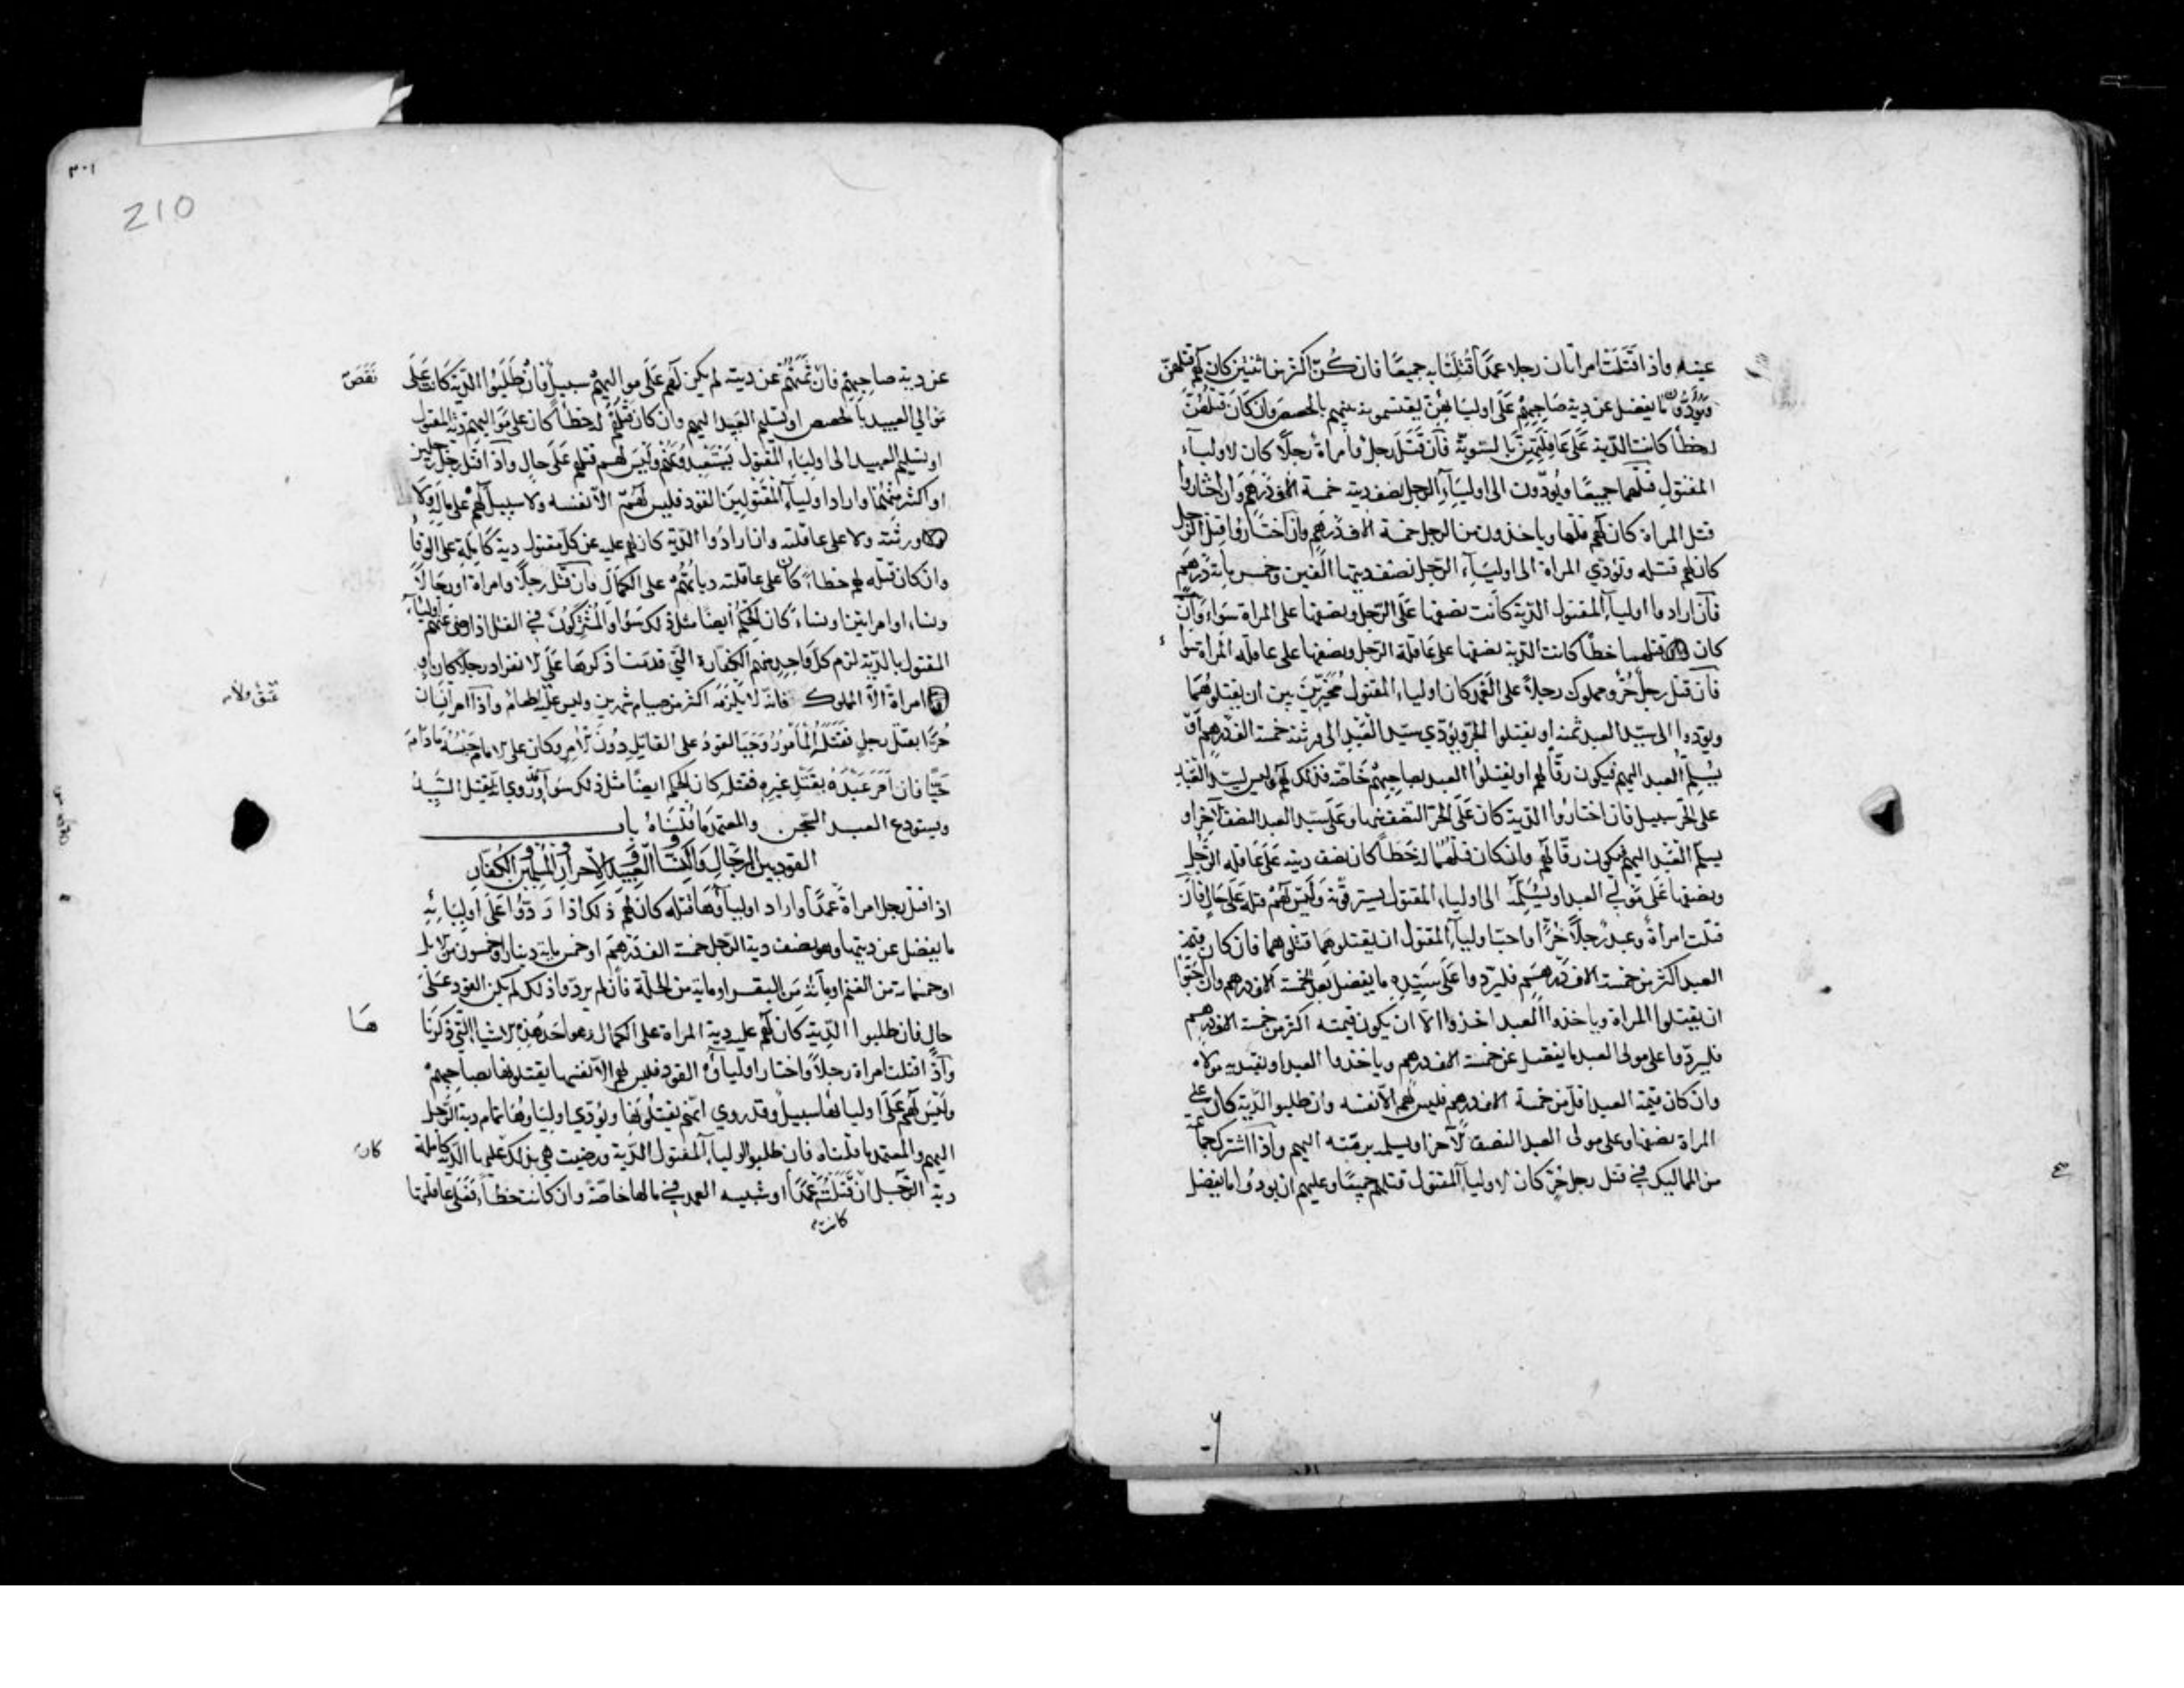 عينه واذا قتلت امراتان رجلا عمدًا قُتِلتا به جميعًا فان كُنّ اكثر من اثنتين كان لهم قتلهنّ
ويؤدّون ما يفضل عن دية صاحبهم على اوليائهنّ يقتسمونه بينهم بالحصص وان كان قتلهنّ
له خطأ كانت الدية على عاقلتهنّ بالسّويّة فان قتل رجل وامراة رجلًا كان لاولياء
المقتول قتلهما جميعًا ويؤدّون الى اولياء الرجل نصف ديته خمسة الاف درهم وان اختاروا
قتل المراة كان لهم قتلها وياخذون من الرجل خمسة الاف درهم وان اختاروا قتل الرجل
كان لهم قتله وتؤدّي المراة الى اولياء الرّجل نصف ديتها الفين وخمس مائة درهم
فان ارادوا اولياء المقتول الدّية كانت نصفها على الرّجل ونصفها على المراة سواء وان
كان قتلهما خطأ كانت الدّية نصفها على عاقلة الرّجل ونصفها على عاقلة المراة سواء
فان قتل رجل حُرّ ومملوك رجلًا على العمد كان اولياء المقتول مُخيّرين بين ان يقتلوهما
ويؤدوا الى سيّد العبد ثمنه او يقتلوا الحرّ ويؤدّي سيّد العبد الى ورثته خمسة الف درهم او
يُسلّم العبد اليهم فيكون رقًّا لهم او يقتلوا العبد بصاحبهم خاصّة فذلك لهم وليس لسيّد العبد
على الحرّ سبيل فان اختاروا الدّية كان على الحرّ النّصف منها وعلى سيّد العبد النصف الآخر او
يسلّم العبد اليهم فيكون رقًّا لهم وان كان قتلهما له خطأ كان نصف ديته على عاقلة الرّجل
ونصفها على مولى العبد او يُسلّمه الى اولياء المقتول يسترقّونه وليس لهم قتله على حال فان
قتلت امراة وعبد رجلًا حُرًّا واحبّ اولياء المقتول ان يقتلوهما قتلوهما فان كان قيمة
العبد اكثر من خمسة الاف درهم فليردّوا على سيّده ما يفضل بعد الخمسة الاف درهم وان احبّوا
ان يقتلوا المراة وياخذوا العبد اخذوا الّا ان يكون قيمته اكثر من خمسة الاف درهم
فليردّوا على مولى العبد ما يفضل عن خمسة الاف درهم وياخذوا العبد او يفتديه مولاه
وان كان قيمة العبد اقلّ من خمسة الاف درهم فليس لهم الّا نفسه وان طلبوا الدّية كان على
المراة نصفها وعلى مولى العبد النصف الآخر او يسلّمه برمّته اليهم واذا اشترك جماعة
من المماليك في قتل رجل حُرّ كان لاولياء المقتول قتلهم جميعًا وعليهم ان يؤدّوا ما يفضل
٣٠١
210
عن دية صاحبهم فان ثمنهم عن ديته لم يكن لهم على مواليهم سبيل فان طلبوا الدّية كانت على
نَقَصَ
موالي العبيد بالحصص او تسليم العبيد اليهم وان كان قتلهم له خطأ كان على مواليهم دية المقتول
او تسليم العبيد الى اولياء المقتول يستعبدونهم وليس لهم قتلهم على حال واذا قتل رجل رجلين
او اكثر منهما واراد اولياء المقتولين القود فليس لهم الّا نفسه ولا سبيل لهم على ماله ولا
ورثته ولا على عاقلته وان ارادوا الدّية كان لهم عليه عن كل مقتول دية كاملة على الوفا
وان كان قتله لهم خطأ كان على عاقلته دياتهم على الكمال وان قتل رجلًا وامراة او رجالًا
ونساء او امراتين او نساء كان الحكم ايضًا مثل ذلك سواء والمشتركون في القتل اذا رضي عنهم اولياء
المقتول بالدّية لزم كلّ واحد منهم الكفّارة التي قدمنا ذكرها على الانفراد رجلًا كان او
امراة الّا المملوك فانّه لا يلزمه اكثر من صيام شهرين وليس عليه اطعام واذا امر انسان
عتق ولا
حُرًّا بقتل رجل فقتله المأمور وجب القود على القاتل دون الآمر وكان على الامام حبسه ما دام
حيًّا فان امر عبده بقتل غيره فقتله كان الحكم ايضًا مثل ذلك سواء وروي انّه يقتل السّيد
ويستودع العبد السّجن والمعتمد ما قلناه باب
القود بين الرّجال والنّساء والعبيد والاحرار والمسلمين والكفّار
اذا قتل رجل امراةً عمدًا واراد اولياؤها قتله كان لهم ذلك اذا ردّوا على اوليائه
ما يفضل عن ديتها وهو نصف دية الرّجل خمسة الف درهم او خمس ماية دينار او خمسون من الابل
او خمسماية من الغنم او مائة من البقر او ماية من الحلّة فان لم يردّوا ذلك لم يكن القود على
حال فان طلبوا الدّية كان لهم عليه دية المراة على الكمال وهو احد هذه الاشياء التي ذكرنا
ها
واذا قتلت امراة رجلًا واختار اولياؤه القود فليس لهم الّا نفسها يقتلونها بصاحبهم
وليس لهم على اوليائها سبيل وقد روي انّهم يقتلونها ويؤدّي اولياؤها تمام دية الرّجل
اليهم والمعتمد ما قلناه فان طلبوا اولياء المقتول الدّية ورضيت هي بذلك عليها الدّية كاملة
كان
دية الرّجل ان قتلته عمدًا او شبيه العمد في مالها خاصّة وان كانت خطأ فعلى عاقلتها
كانت